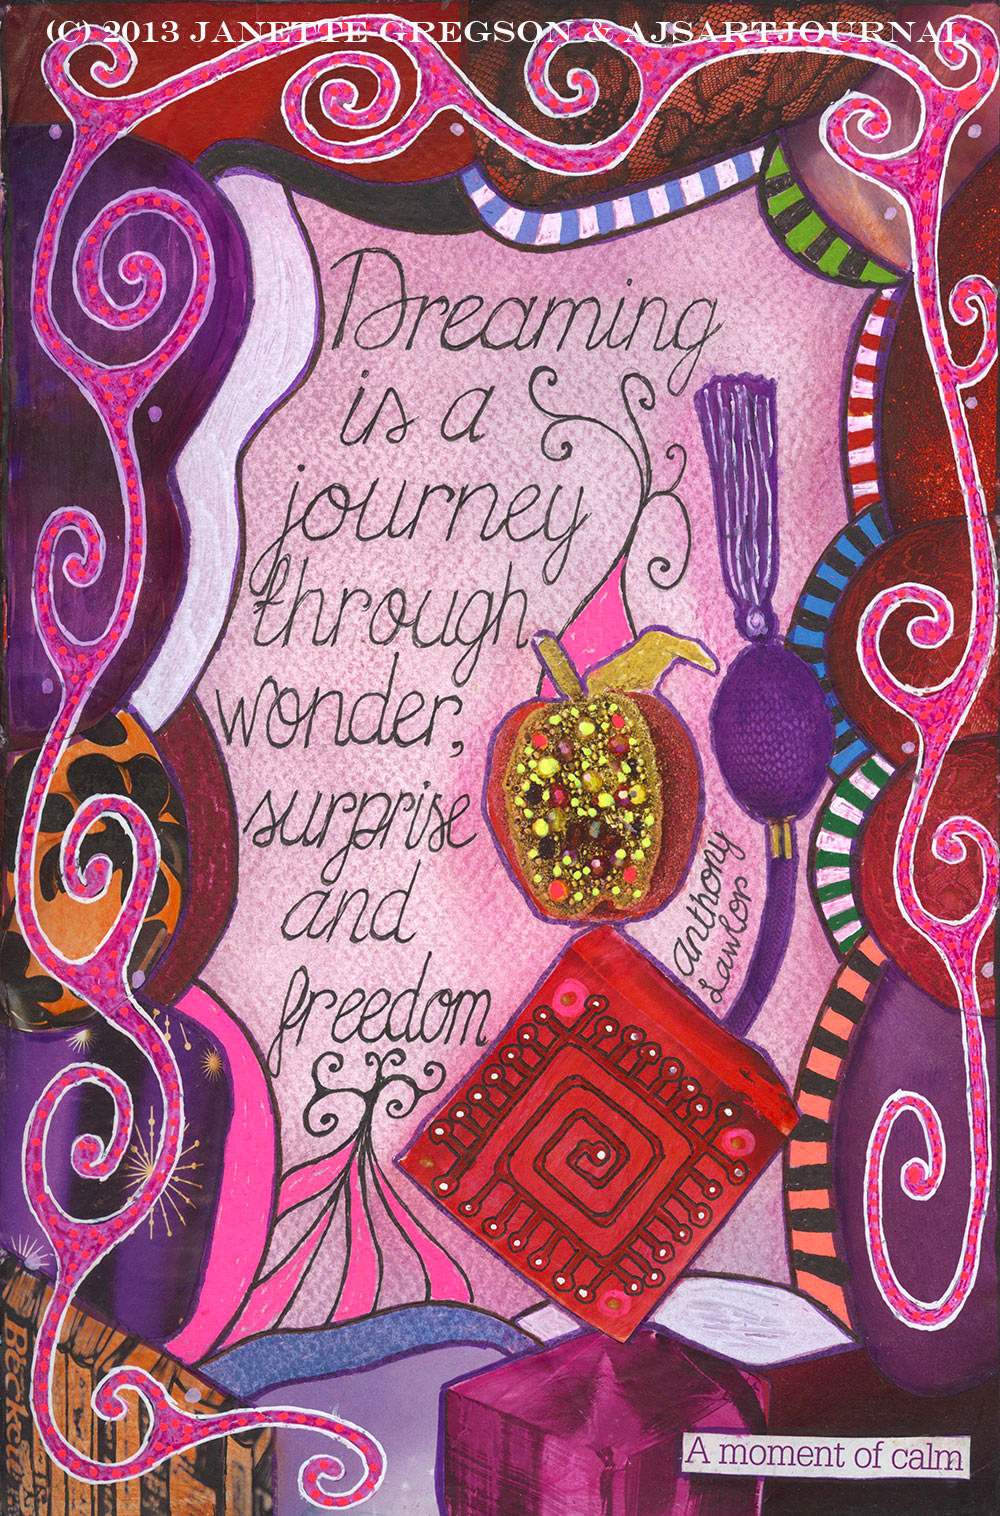 (C) 2013 JANETTE GREGSON & AJSARTJOURNAL
Dreaming
is a
journey
through
wonder,
surprise
and
freedom
anthony
Lawlor
A moment of calm